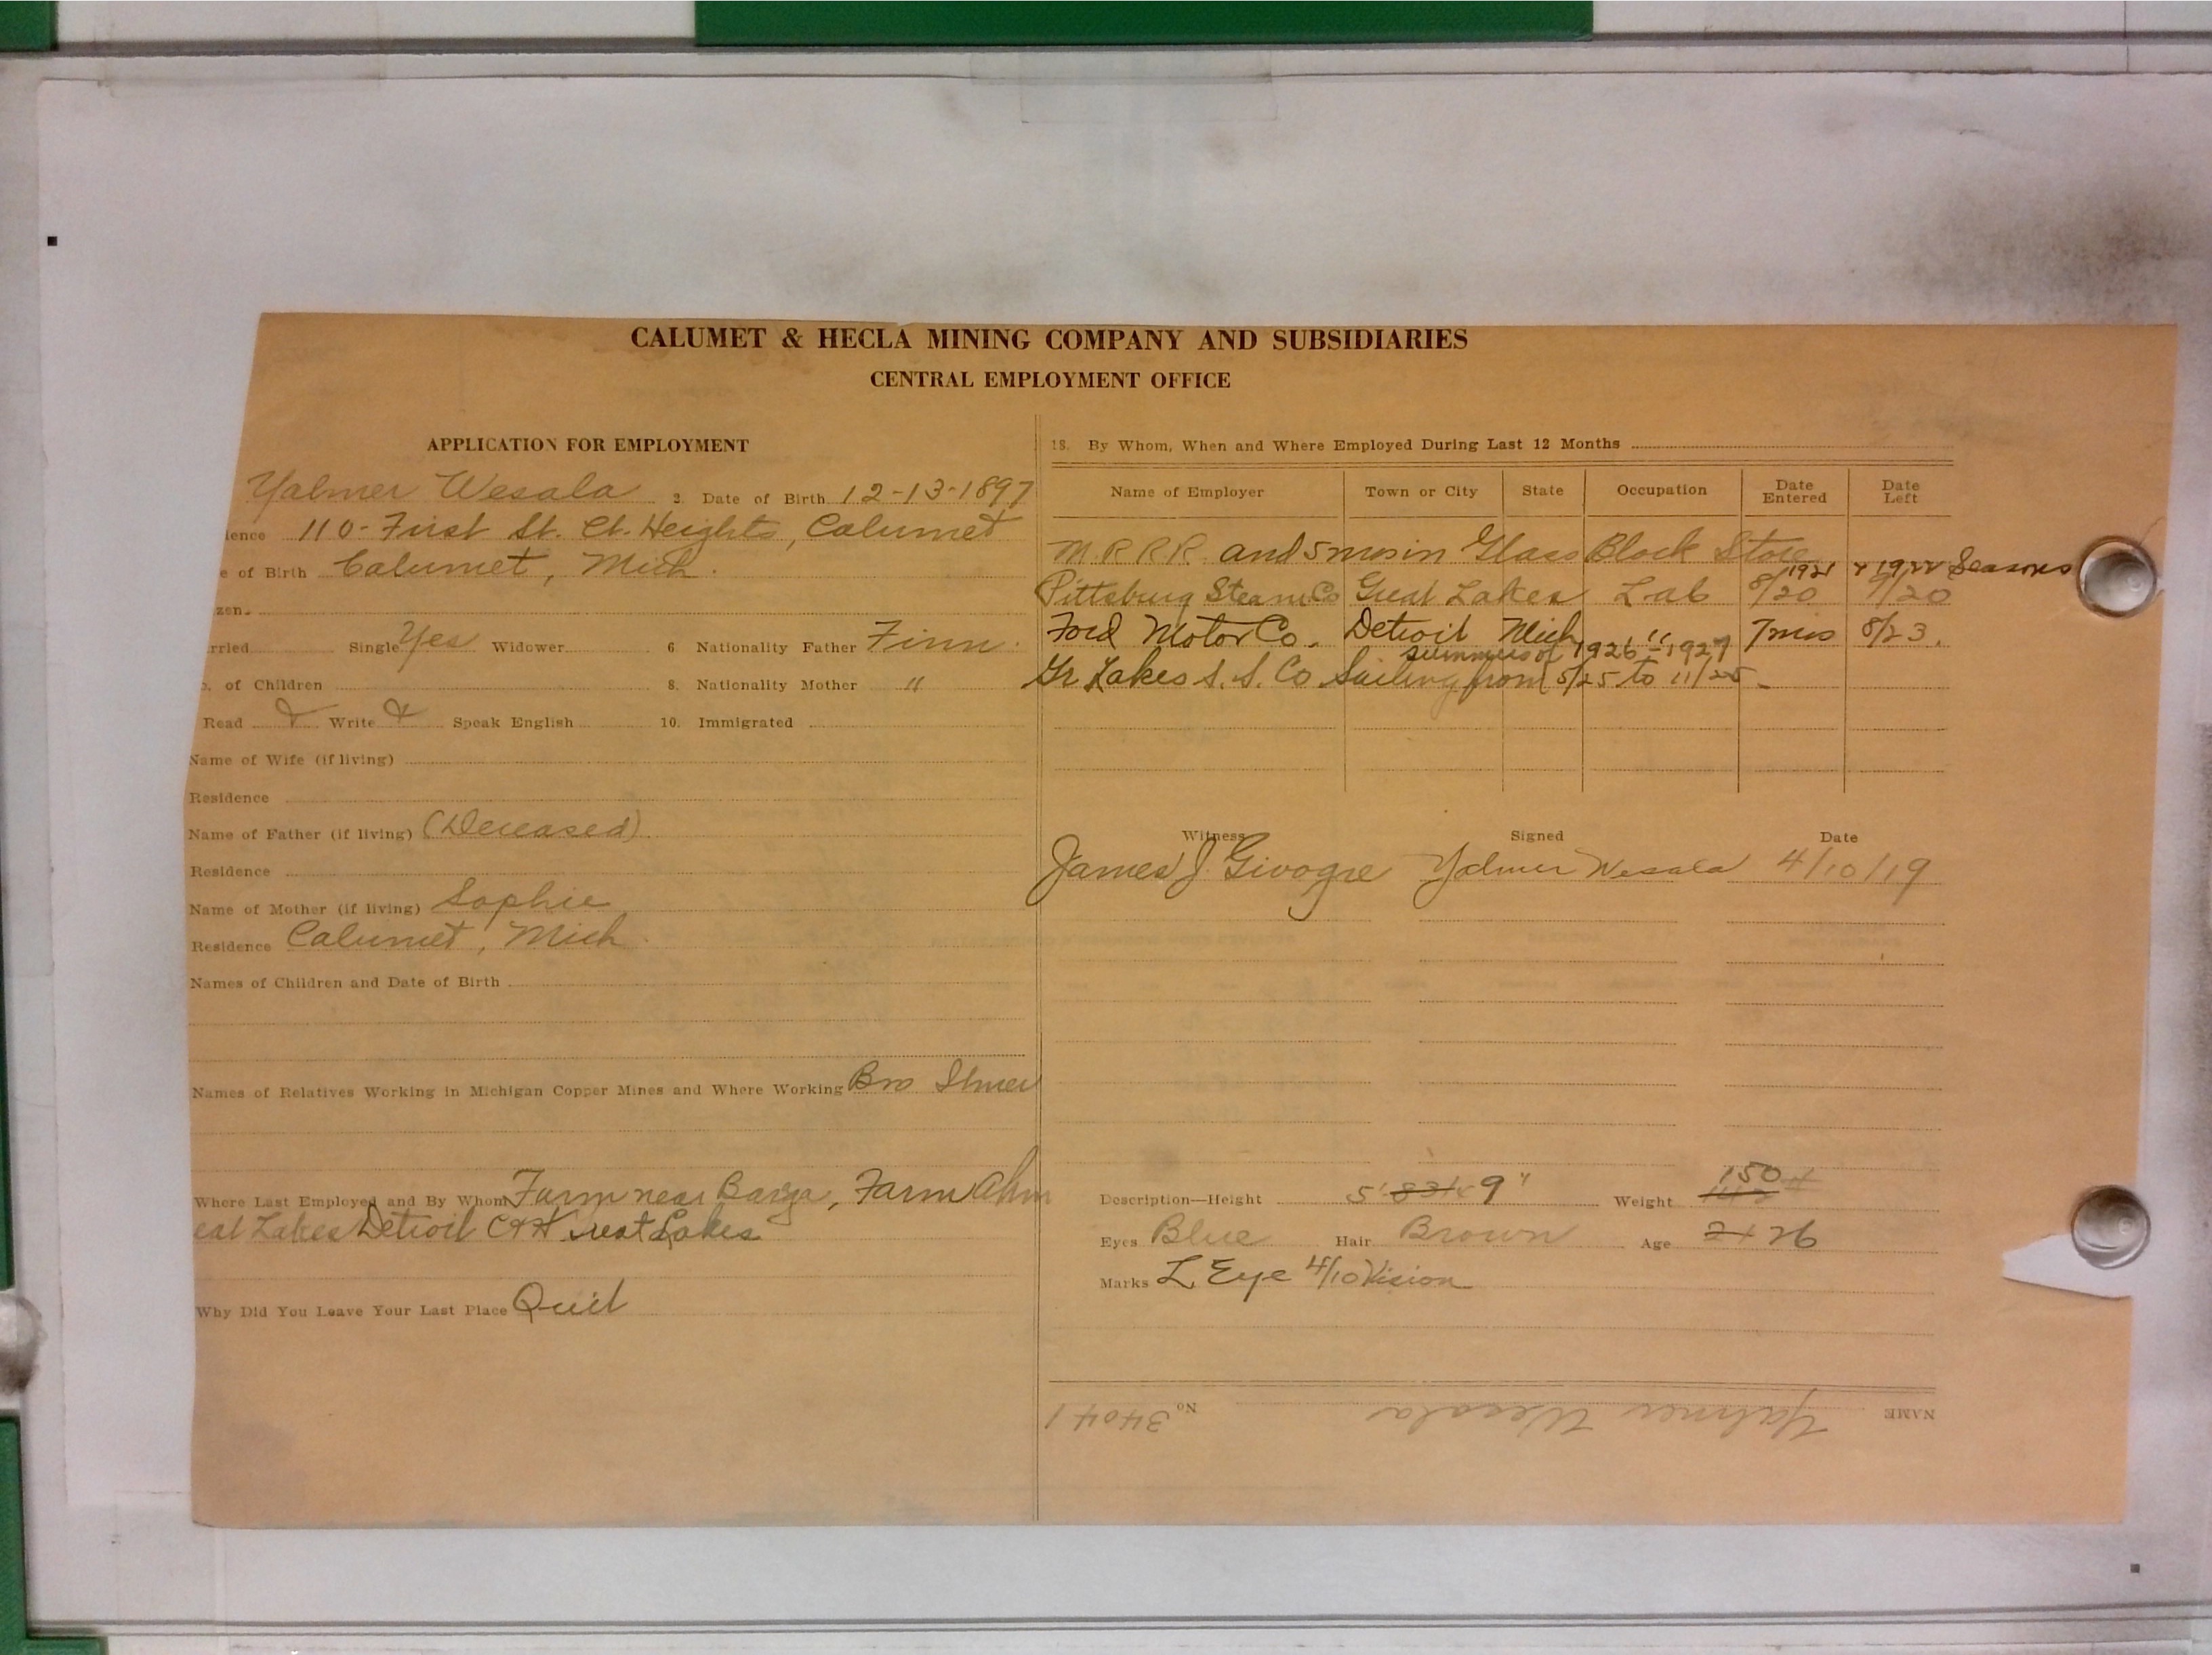 CALUMET & HECLA MINING COMPANY AND SUBSIDIARIES
CENTRAL EMPLOYMENT OFFICE
APPLICATION FOR EMPLOYMENT
Yalmer Wesala 2. Date of Birth 12-13-1897
ience 110- First St. Ct. Heights, Calumet
e of Birth Calumet, Mich.
zen
rried Single Yes Widower 6 Nationality Father Finn.
. of Children 8. Nationality Mother "
Read Write Speak English 10. Immigrated
Name of Wife (if living)
Residence
Name of Father (if living) (Deceased)
Residence
Name of Mother (if living) Sophie
Residence Calumet, Mich.
Names of Children and Date of Birth
Names of Relatives Working in Michigan Copper Mines and Where Working Bro
Where Last Employed and By Whom Farm near Farm
eat Lakes Detroit C&H Great Lakes
Why Did You Leave Your Last Place Quit
18. By Whom, When and Where Employed During Last 12 Months
Name of Employer Town or City State Occupation Date Entered Date Left
M.R.R.R. and 5 mos in Glass Block Store
1921 & 1922 Seasons
Pittsburg Steam Co Great Lakes Lab 8/20 9/20
Ford Motor Co. Detroit Mich 7 mos 8/23.
summers of 1926 - " 1927
Gr Lakes S. S. Co Sailing from 5/25 to 11/25-
Witness Signed Date
James J. Givogre Yalmer Wesala 4/10/19
Description—Height 5' 8 3/4 9" Weight 150 #
Eyes Blue Hair Brown Age 21 26
Marks L Eye 4/10 Vision
NAME Yalmer Wesala No 34041